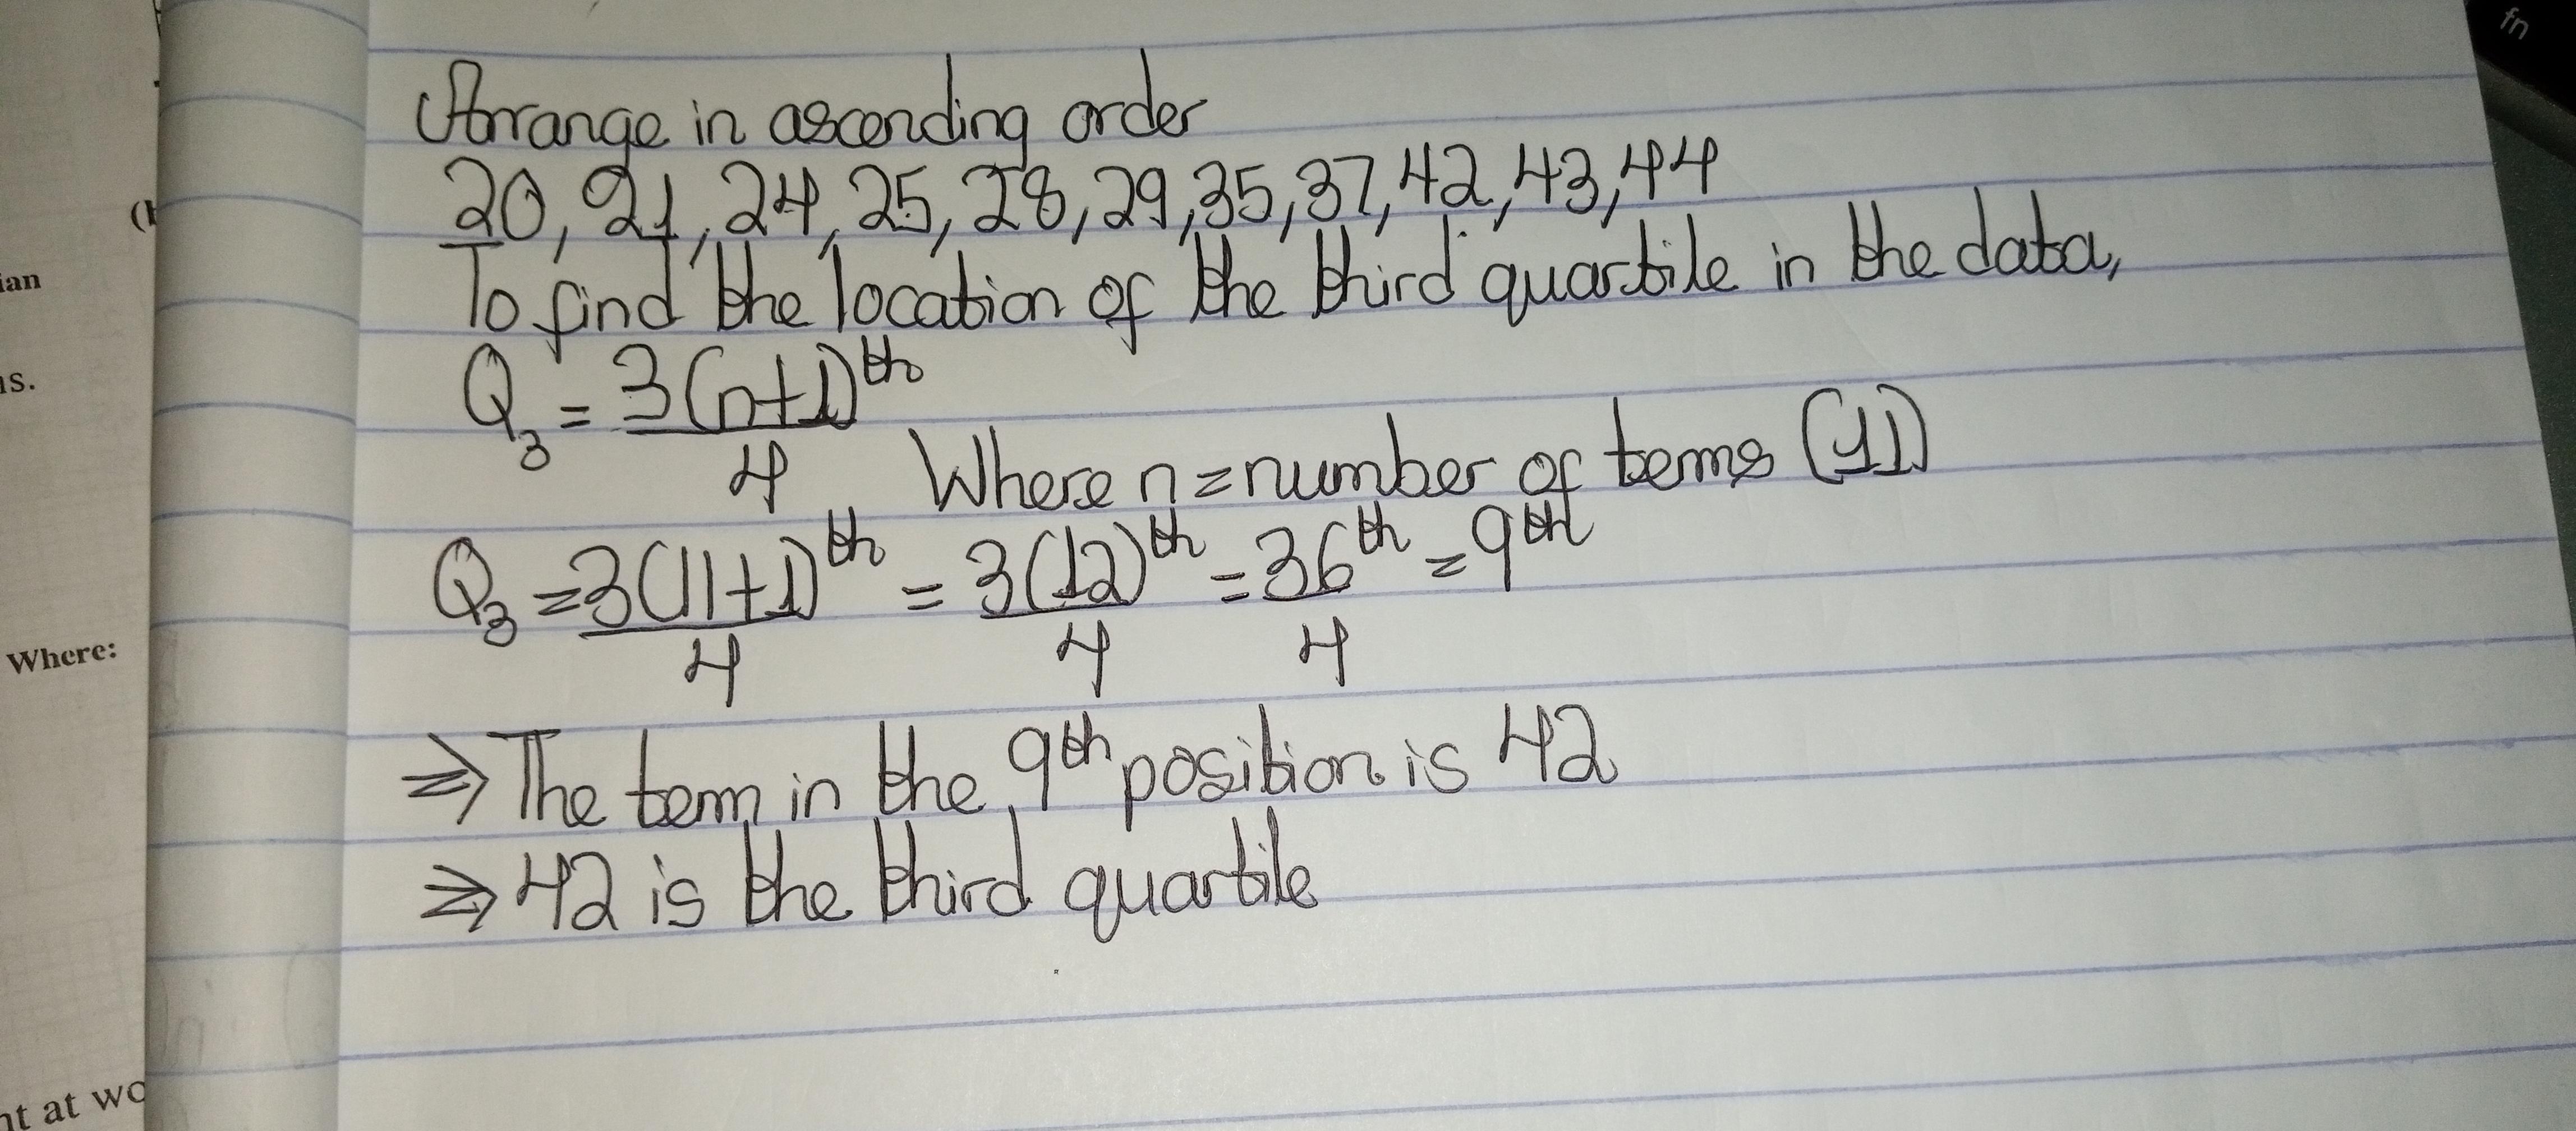 Arrange in ascending order
20, 21, 24, 25, 28, 29, 35, 37, 42, 43, 44
To find the location of the third quartile in the data,
Q₃ = 3(n+1)ᵗʰ / 4
Where n = number of terms (11)
Q₃ = 3(11+1)ᵗʰ / 4 = 3(12)ᵗʰ / 4 = 36ᵗʰ / 4 = 9ᵗʰ
⇒ The term in the 9ᵗʰ position is 42
⇒ 42 is the third quartile
ian
ns.
Where:
nt at wo
fn